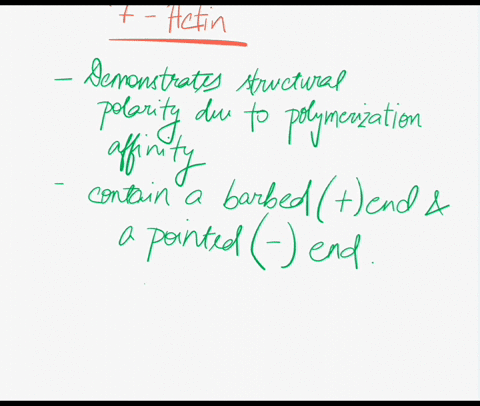 F - Actin
- Demonstrates structural
polarity due to polymerization
affinity
- contain a barbed (+) end &
a pointed (-) end.